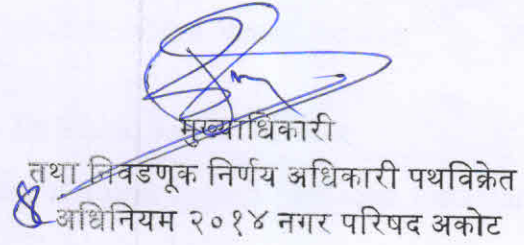 मुख्याधिकारी
तथा निवडणूक निर्णय अधिकारी पथविक्रेत
अधिनियम २०१४ नगर परिषद अकोट